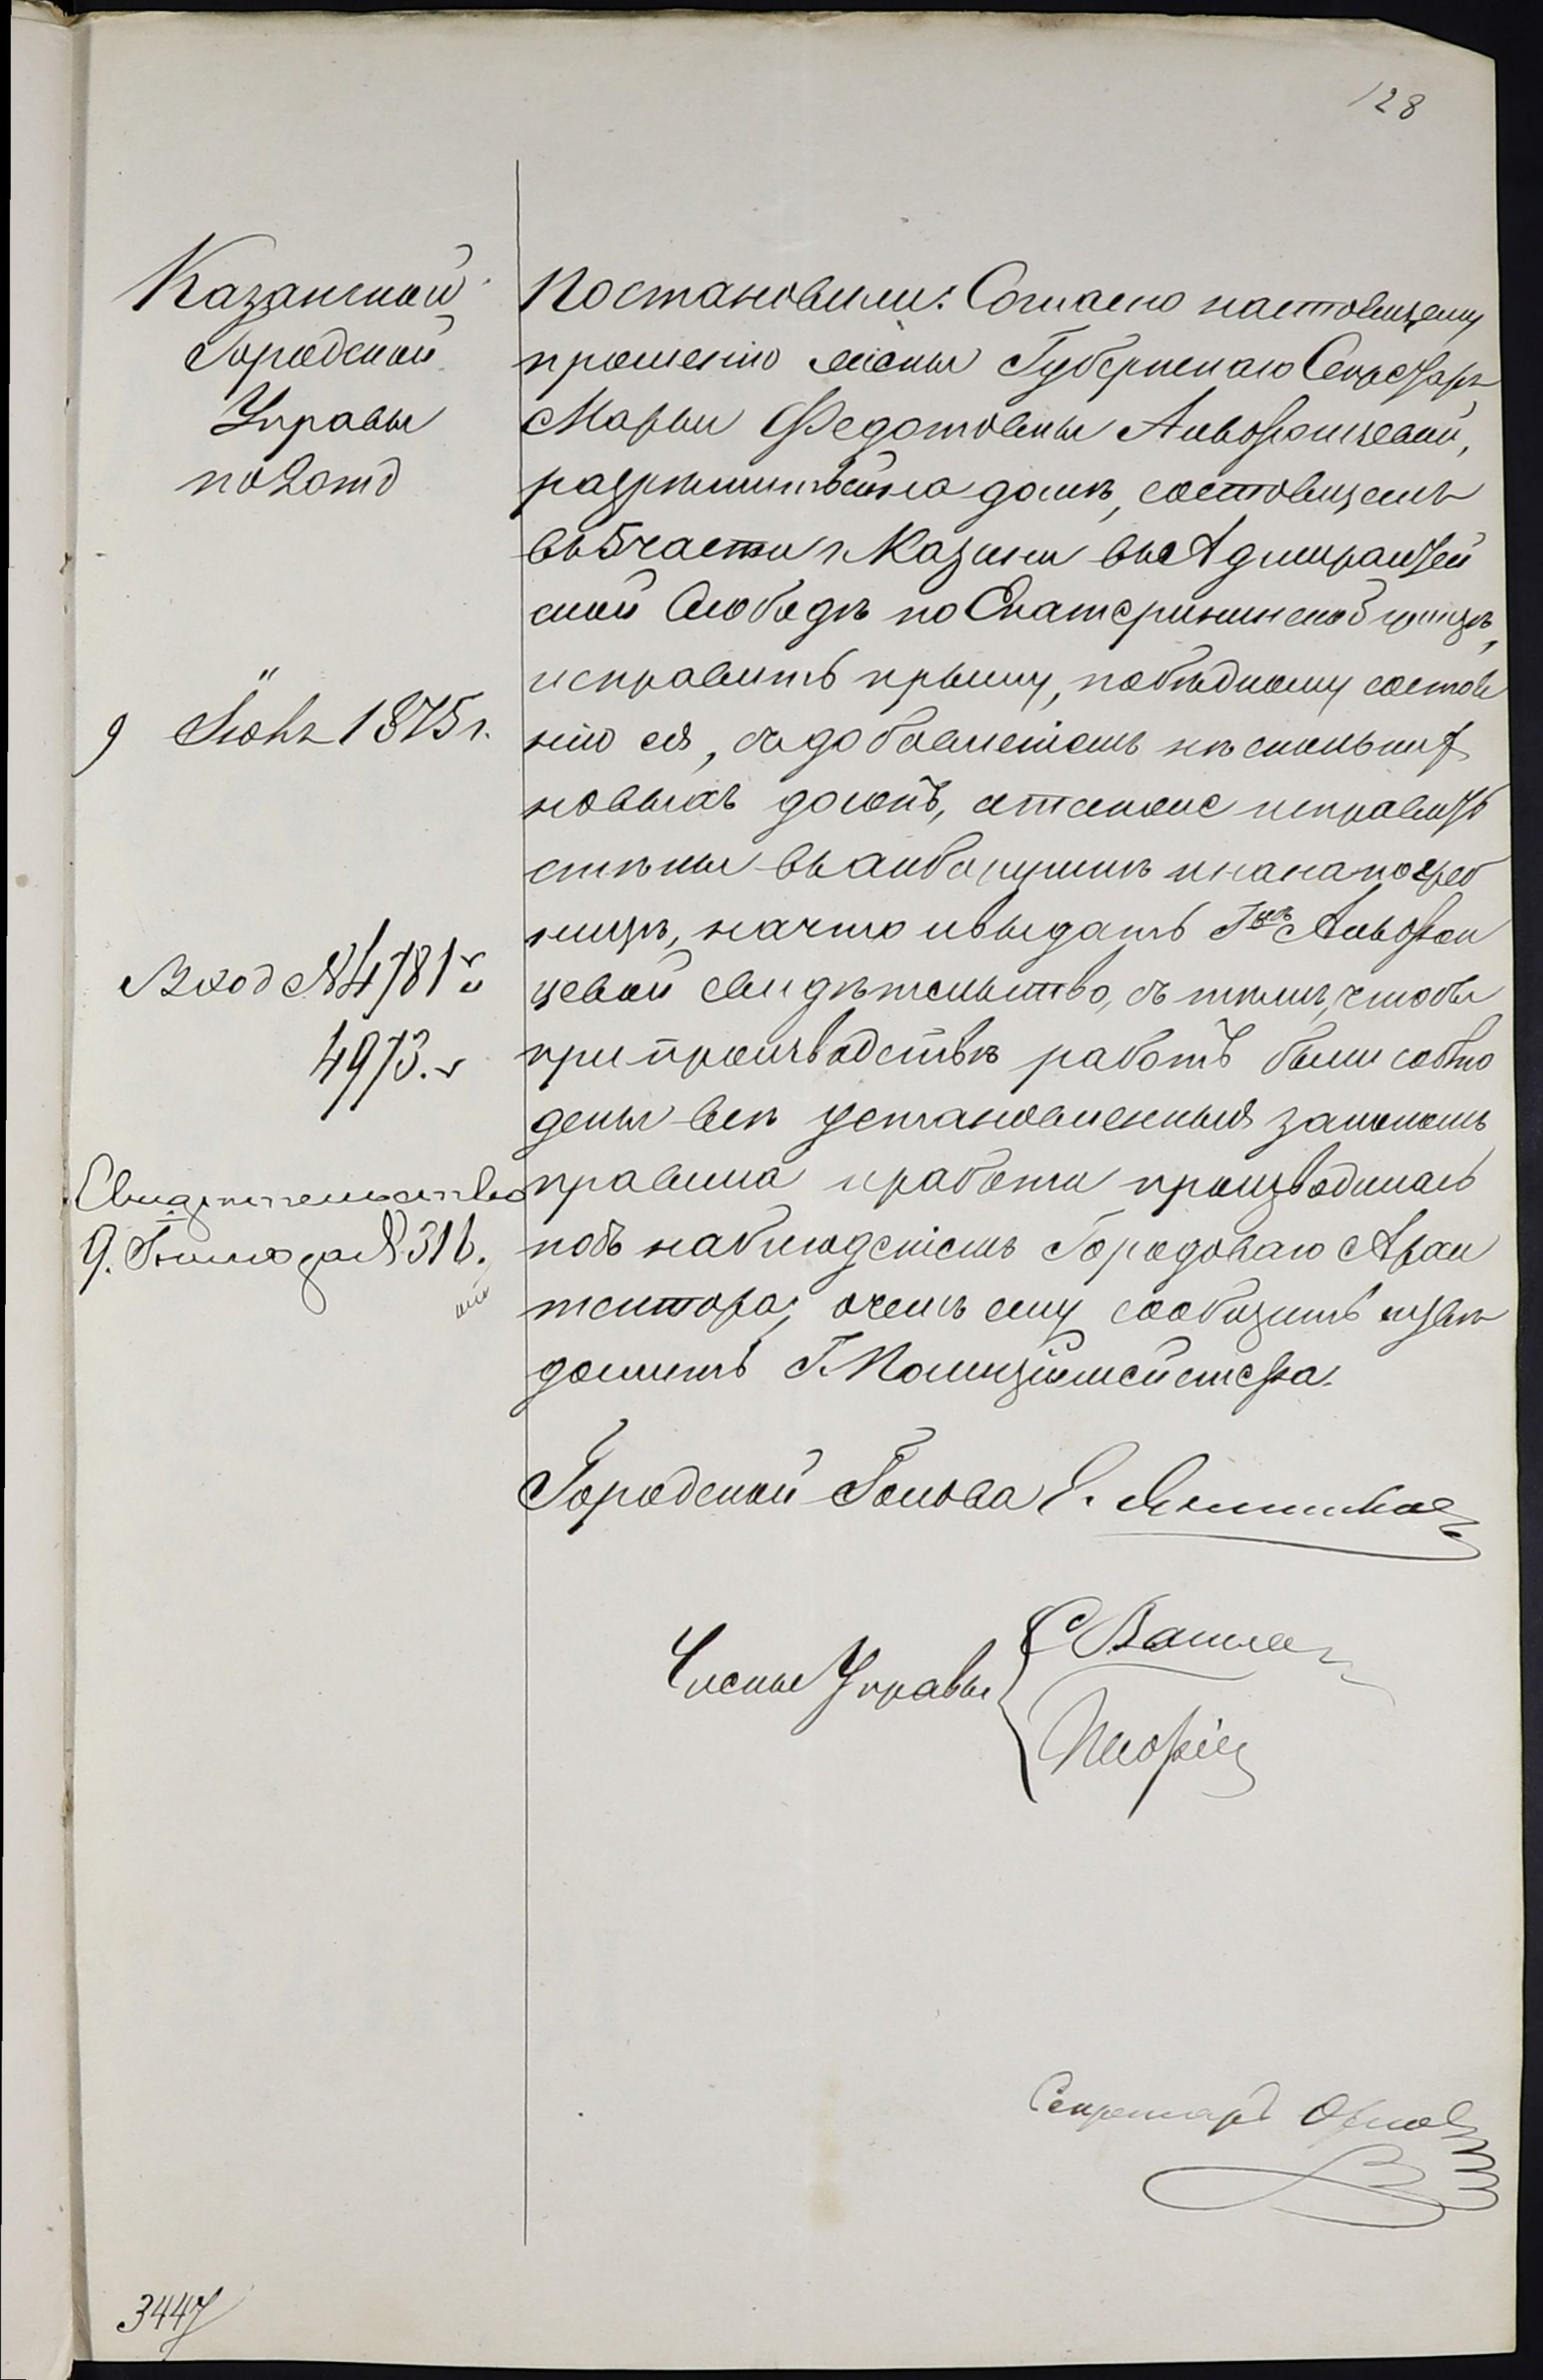 128
Казанской
Городской
Управы
по 2 отд
9 Іюня 1875 г.
Вход № 4781
4973.
Свидѣтельство
9. Іюля за № 316.
Постановили: Согласно настоящему
прошенію жены Губернскаго Секретаря
Марьи Федотовны Аливоронцевой,
разрѣшить ей на домѣ, состоящемъ
въ 5 части г. Казани въ Адмиралтей
ской Слободѣ по Екатерининской улицѣ,
исправить крышу, по бѣдному состоя
нію ея, съ добавленіемъ нѣсколькихъ
новыхъ досокъ, а также исправить
стѣны въ амбарушкѣ и на напогреб
ницѣ, на что и выдать Г-жѣ Аливорон
цевой свидѣтельство, съ тѣмъ, чтобы
при производствѣ работъ были соблю
дены всѣ установленныя закономъ
правила и работа производилась
подъ наблюденіемъ Городоваго Архи
тектора; о чемъ ему сообщить и увѣ
домить Г. Полиціймейстера.
Городской Голова Е.
Члены Управы
Секретарь
3447